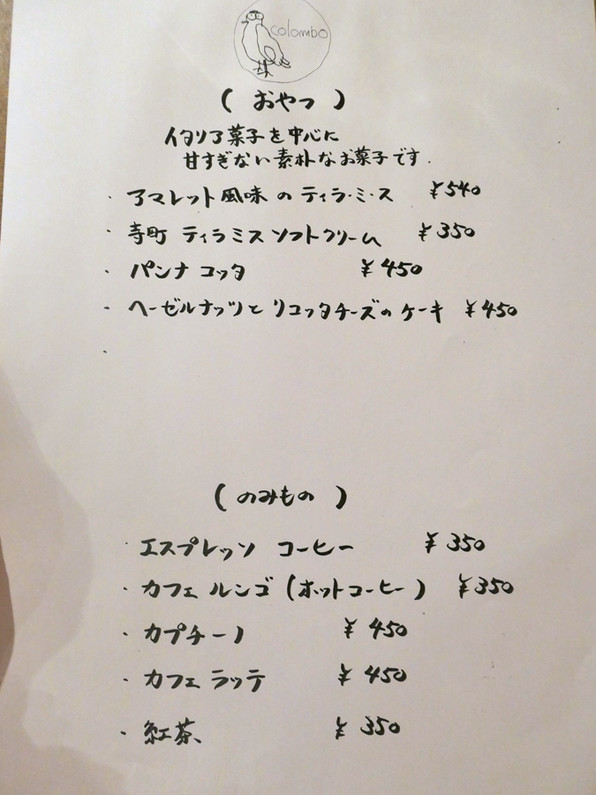 colombo
( おやつ )
イタリア菓子を中心に
甘すぎない素朴なお菓子です.
・アマレット風味のティラ・ミ・ス ¥540
・寺町 ティラミスソフトクリーム ¥350
・パンナコッタ ¥450
・ヘーゼルナッツとリコッタチーズのケーキ ¥450
・
( のみもの )
・エスプレッソ コーヒー ¥350
・カフェ ルンゴ (ホットコーヒー) ¥350
・カプチーノ ¥450
・カフェ ラッテ ¥450
・紅茶 ¥350